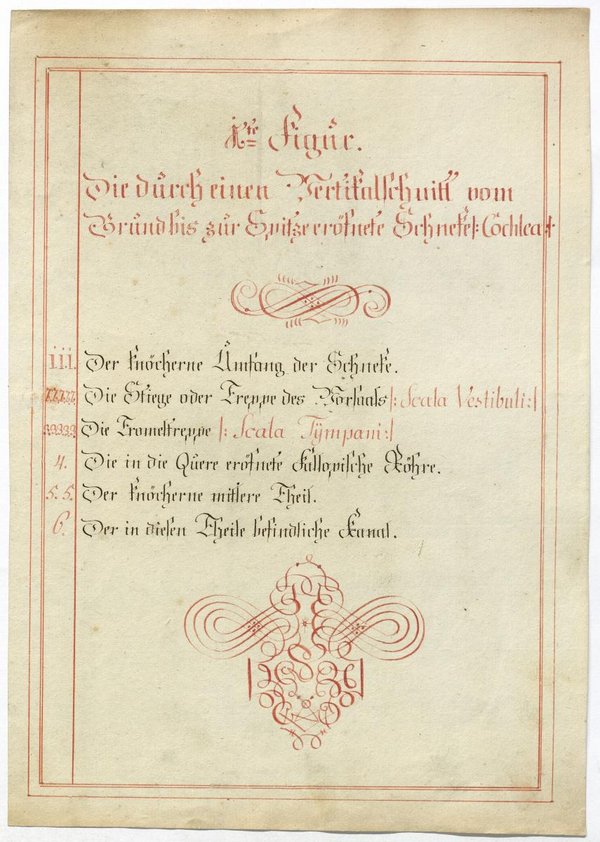 1te Figur.
Die durch einen Vertikalschnitt vom
Grund bis zur Spitze eröfnete Schneke |: Cochlea :|
1.1.1. Der knöcherne Umfang der Schneke.
2.2.2.2.2. Die Stiege oder Treppe des Vorsaals |: Scala Vestibuli :|
3.3.3.3.3. Die Tromeltreppe |: Scala Tÿmpani :|
4. Die in die Quere eröfnete Fallopische Röhre.
5.5. Der knöcherne mitlere Theil.
6. Der in diesen Theile befindliche Kanal.